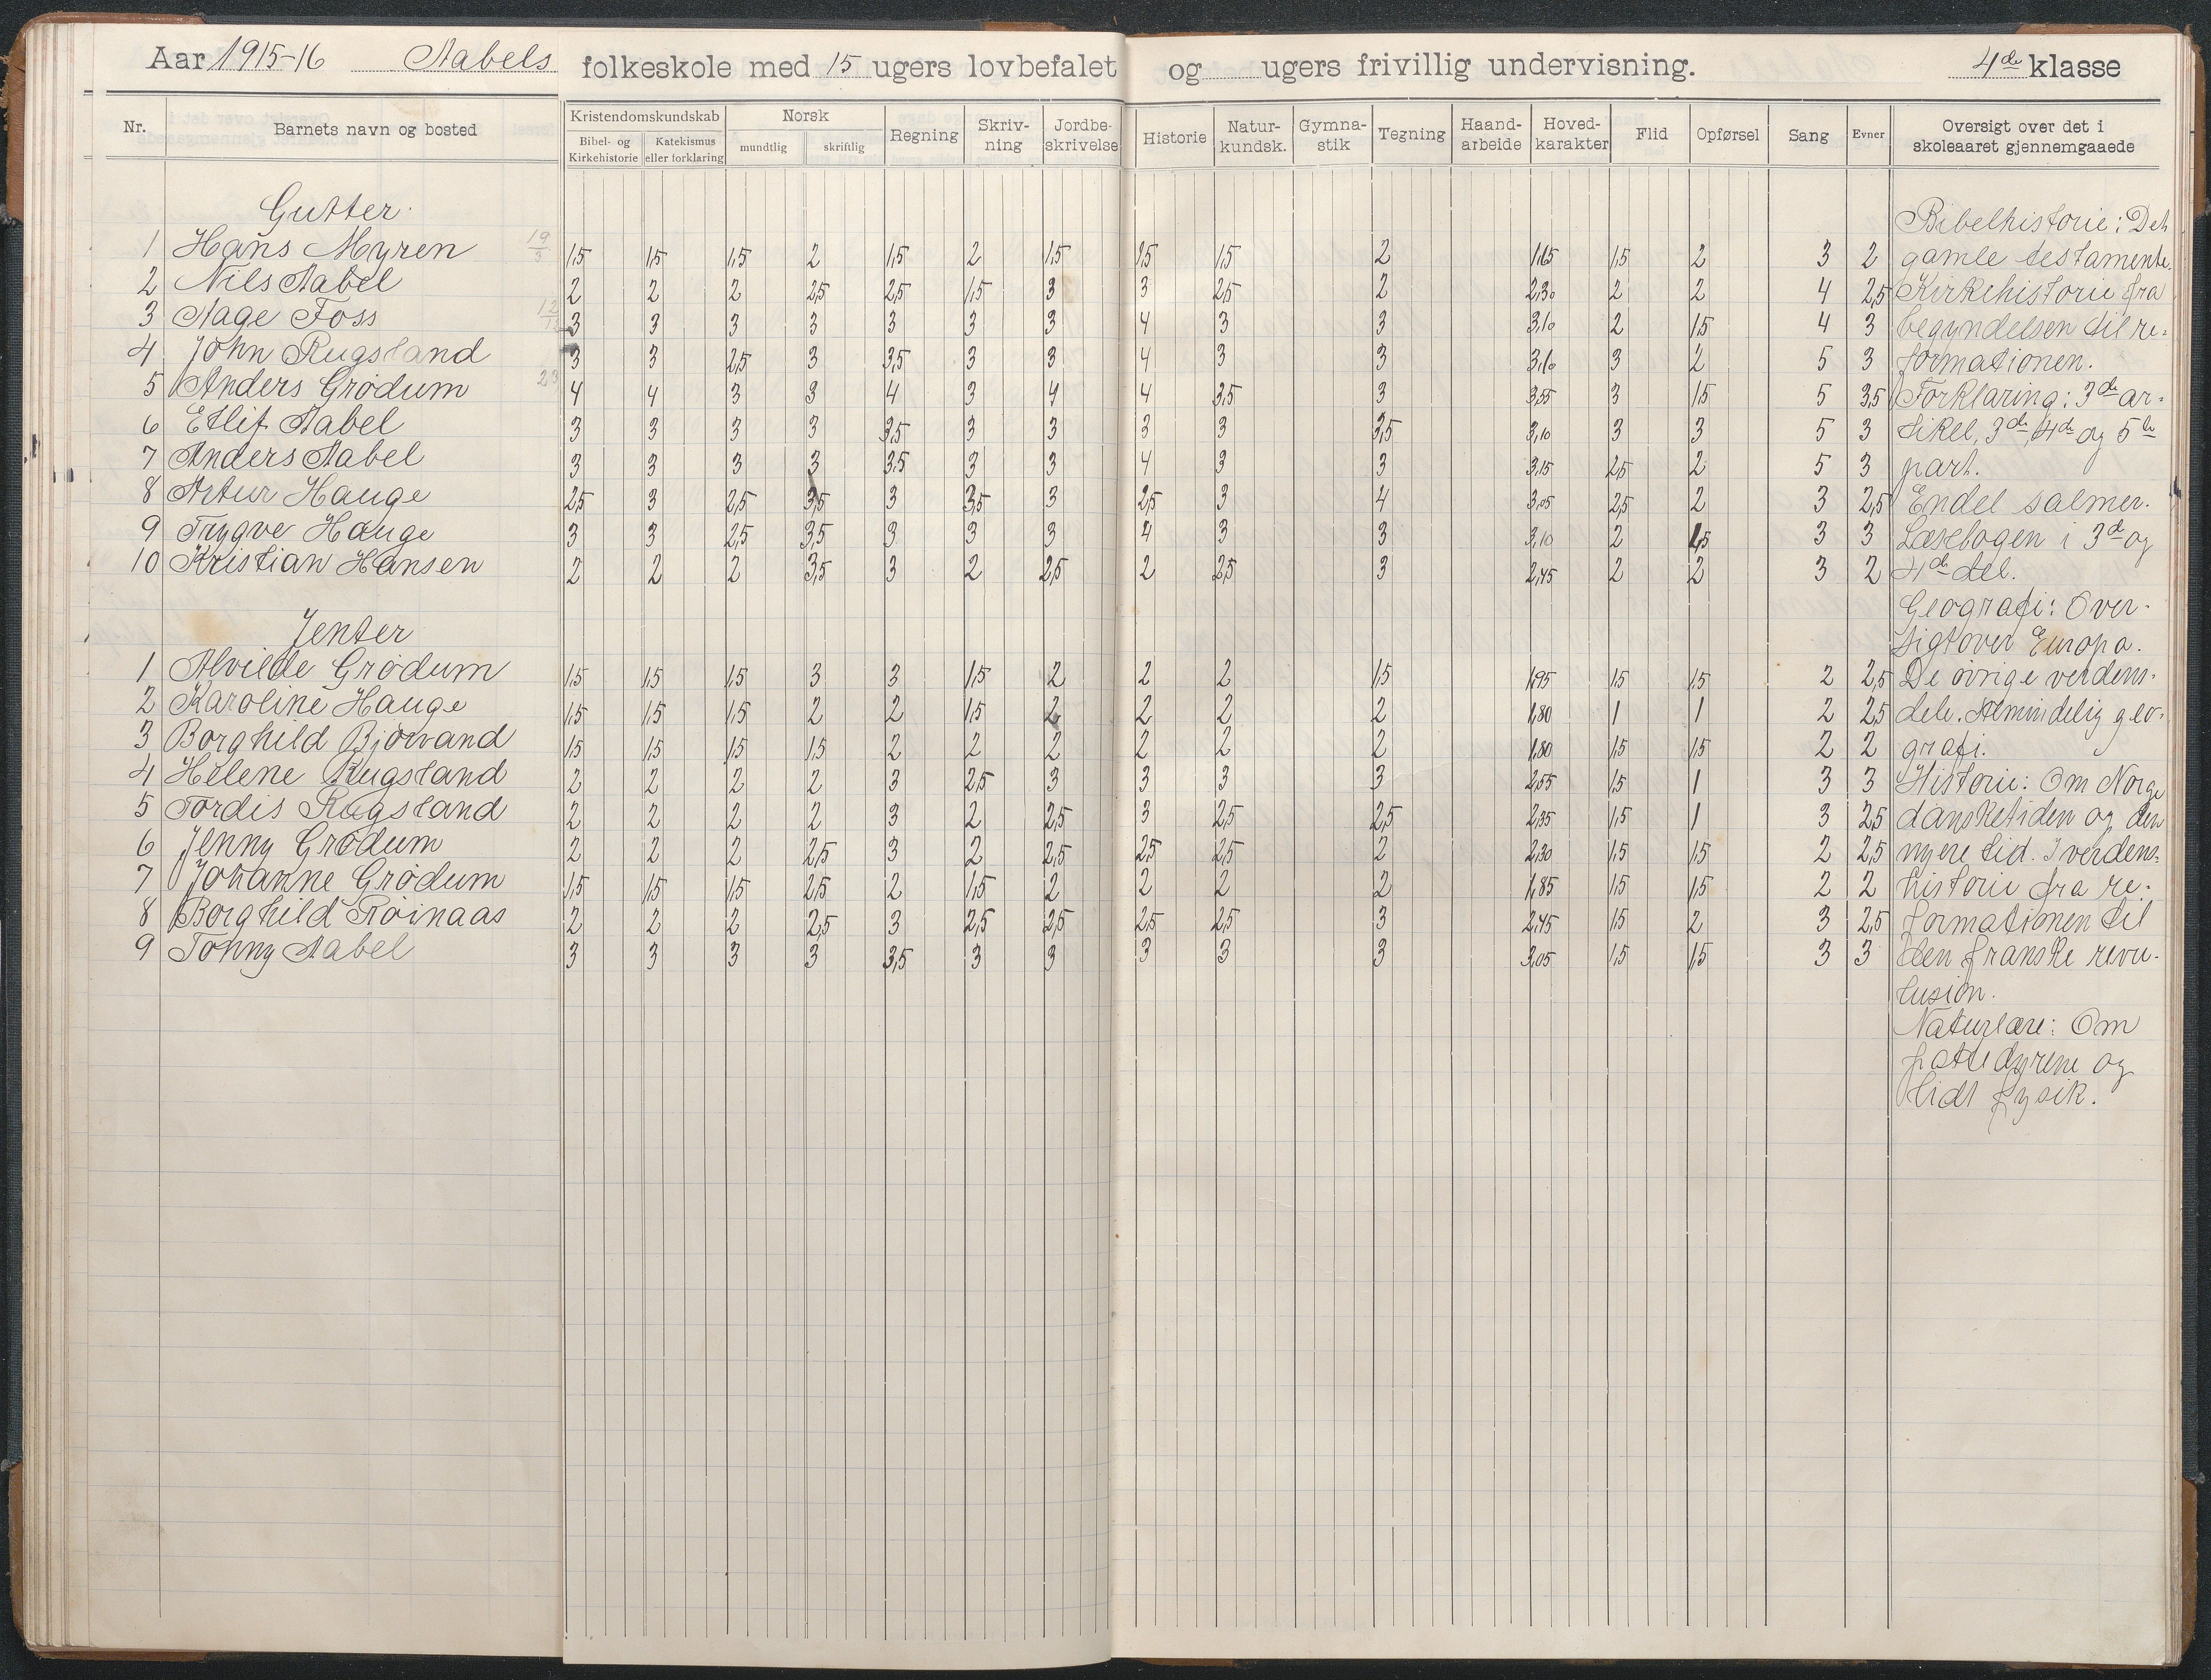 Aar 1915-16 Aabels folkeskole med 15 ugers lovbefalet og ugers frivillig undervisning. 4de klasse
Nr. Barnets navn og bosted Kristendomskundskab Norsk Regning Skriv-ning Jordbe-skrivelse Historie Natur-kundsk. Gymna-stik Tegning Haand-arbeide Hoved-karakter Flid Opførsel Sang Evner Oversigt over det i skoleaaret gjennemgaaede
Bibel- og Kirkehistorie Katekismus eller forklaring mundtlig skriftlig
Gutter.
1 Hans Myren 1,5 1,5 1,5 2 1,5 2 1,5 1,5 1,5 2 1,65 1,5 2 3 2
2 Nils Aabel 2 2 2 2,5 2,5 1,5 3 3 2,5 2 2,30 2 2 4 2,5
3 Aage Foss 3 3 3 3 3 3 3 4 3 3 3,10 2 1,5 4 3
4 John Rugsland 3 3 2,5 3 3,5 3 3 4 3 3 3,10 3 2 5 3
5 Anders Grødum 4 4 3 3 4 3 4 4 3,5 3 3,55 3 1,5 5 3,5
6 Etlif Aabel 3 3 3 3 3,5 3 3 3 3 3,5 3,10 3 3 5 3
7 Anders Aabel 3 3 3 3 3,5 3 3 4 3 3 3,15 2,5 2 5 3
8 Artur Hauge 2,5 3 2,5 3,5 3 3,5 3 2,5 3 4 3,05 2,5 2 3 2,5
9 Trygve Hauge 3 3 2,5 3,5 3 3 3 4 3 3 3,10 2 1,5 3 3
10 Kristian Hansen 2 2 2 3,5 3 2 2,5 2 2,5 3 2,45 2 2 3 2
Jenter
1 Alvilde Grødum 1,5 1,5 1,5 3 3 1,5 2 2 2 1,5 1,95 1,5 1,5 2 2,5
2 Karoline Hauge 1,5 1,5 1,5 2 2 1,5 2 2 2 2 1,80 1 1 2 2,5
3 Borghild Bjorvand 1,5 1,5 1,5 1,5 2 2 2 2 2 2 1,80 1,5 1,5 2 2
4 Helene Rugsland 2 2 2 2 3 2,5 3 3 3 3 2,55 1,5 1 3 3
5 Tordis Rugsland 2 2 2 2 3 2 2,5 3 2,5 2,5 2,35 1,5 1 3 2,5
6 Jenny Grødum 2 2 2 2,5 3 2 2,5 2,5 2,5 2 2,30 1,5 1,5 2 2,5
7 Johanne Grødum 1,5 1,5 1,5 2,5 2 1,5 2 2 2 2 1,85 1,5 1,5 2 2
8 Borghild Røinaas 2 2 2 2,5 3 2,5 2,5 2,5 2,5 3 2,45 1,5 2 3 2,5
9 Tonny Aabel 3 3 3 3 3,5 3 3 3 3 3 3,05 1,5 1,5 3 3
Bibelhistorie: Det
gamle testamente.
Kirkehistorie fra
begyndelsen til re-
formationen.
Forklaring: 3de ar-
tikel, 3de, 4de og 5te
part.
Endel salmer.
Læsebogen i 3de og
4de del.
Geografi: Over-
sigt over Europa.
De øvrige verdens-
dele. Almindelig geo-
grafi.
Historie: Om Norge
dansketiden og den
nyere tid. I verdens-
historie fra re-
formationen til
den franske revo-
lusion.
Naturlære: Om
pattedyrene og
lidt fysik.